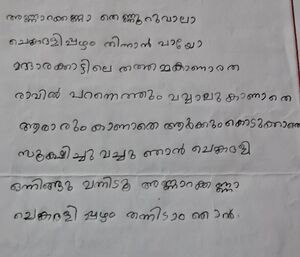 അണ്ണാറക്കണ്ണാ തെണ്ണുറുവാലാ
ചെങ്കദളിപ്പഴം തിന്നാൻ വായോ
മന്ദാരക്കാട്ടിലെ തത്തമ്മകാണാതെ
രാവിൽ പറന്നെത്തും വവ്വാലുകാണാതെ
ആരാരും കാണാതെ ആർക്കും കൊടുക്കാതെ
സൂക്ഷിച്ചു വച്ചു ഞാൻ ചെങ്കദളി
ഒന്നിങ്ങു വന്നിടൂ അണ്ണാറക്കണ്ണാ
ചെങ്കദളി പ്പഴം തന്നിടാം ഞാൻ.